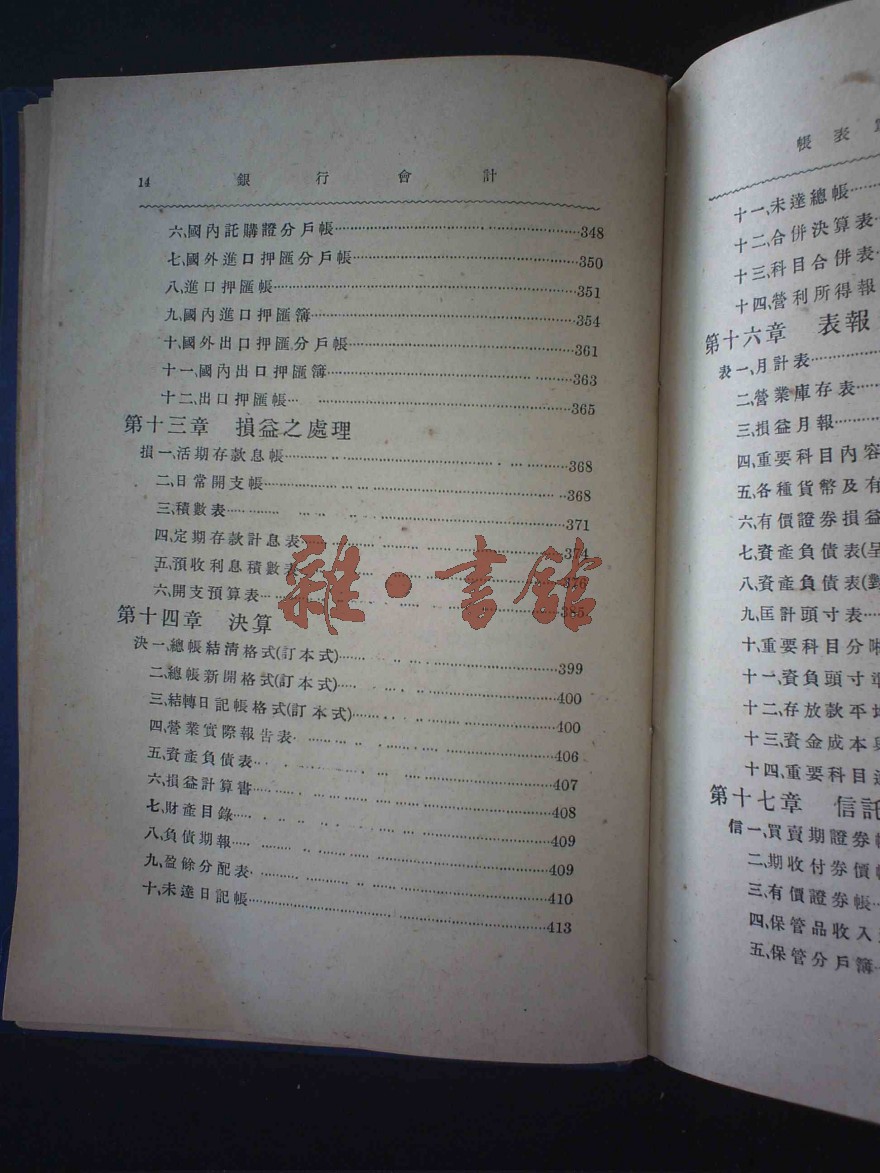 14 銀行會計
六、國內託購證分戶帳348
七、國外進口押匯分戶帳350
八、進口押匯帳351
九、國內進口押匯簿354
十、國外出口押匯分戶帳361
十一、國內出口押匯簿363
十二、出口押匯帳365
第十三章 損益之處理
損一、活期存款息帳368
二、日常開支帳368
三、積數表371
四、定期存款計息表374
五、預收利息積數表376
六、開支預算表385
第十四章 決算
決一、總帳結清格式(訂本式)399
二、總帳新開格式(訂本式)400
三、結轉日記帳格式(訂本式)400
四、營業實際報告表406
五、資產負債表407
六、損益計算書408
七、財產目錄409
八、負債期報409
九、盈餘分配表410
十、未達日記帳413
雜·書館
帳表
十一、未達總帳
十二、合併決算表
十三、科目合併表
十四、營利所得報
第十六章 表報
表一、月計表
二、營業庫存表
三、損益月報
四、重要科目內容
五、各種貨幣及有
六、有價證券損益
七、資產負債表(呈
八、資產負債表(對
九、匡計頭寸表
十、重要科目分
十一、資負頭寸
十二、存放款平均
十三、資金成本與
十四、重要科目
第十七章 信託
信一、買賣期證券帳
二、期收付券價帳
三、有價證券帳
四、保管品收入
五、保管分戶簿